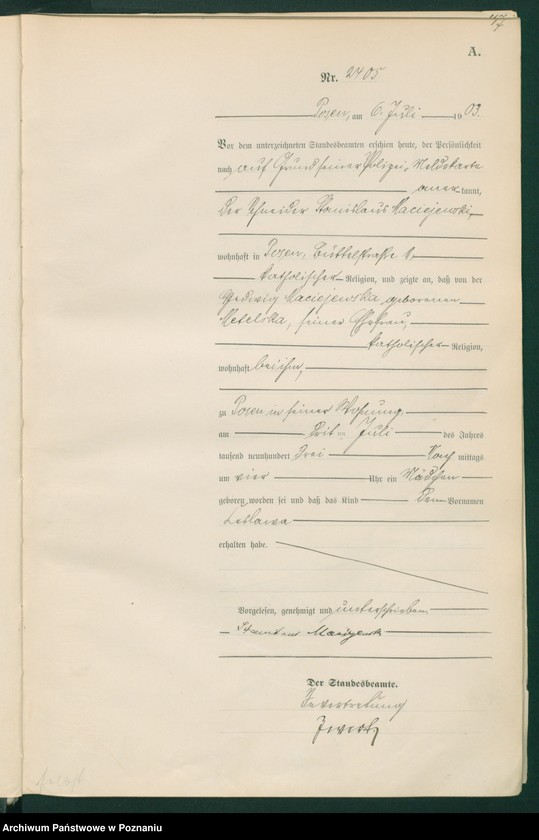 47
A.
Nr. 2405
Posen, am 6. Juli 1903.
Vor dem unterzeichneten Standesbeamten erschien heute, der Persönlichkeit
nach auf Grund seiner Polizei-Meldekarte
anerkannt,
der Schneider Stanislaus Maciejewski,
wohnhaft in Posen, Büttelstraße
katholischer Religion, und zeigte an, daß von der
Hedwig Maciejewska, geborenen
Metelska, seiner Ehefrau,
katholischer Religion,
wohnhaft bei ihm,
zu Posen in seiner Wohnung
am dritten Juli des Jahres
tausend neunhundert drei Nachmittags
um vier Uhr ein Mädchen
geboren worden sei und daß das Kind den Vornamen
Lesława
erhalten habe.
Vorgelesen, genehmigt und unterschrieben
Der Standesbeamte.
In Vertretung
Archiwum Państwowe w Poznaniu